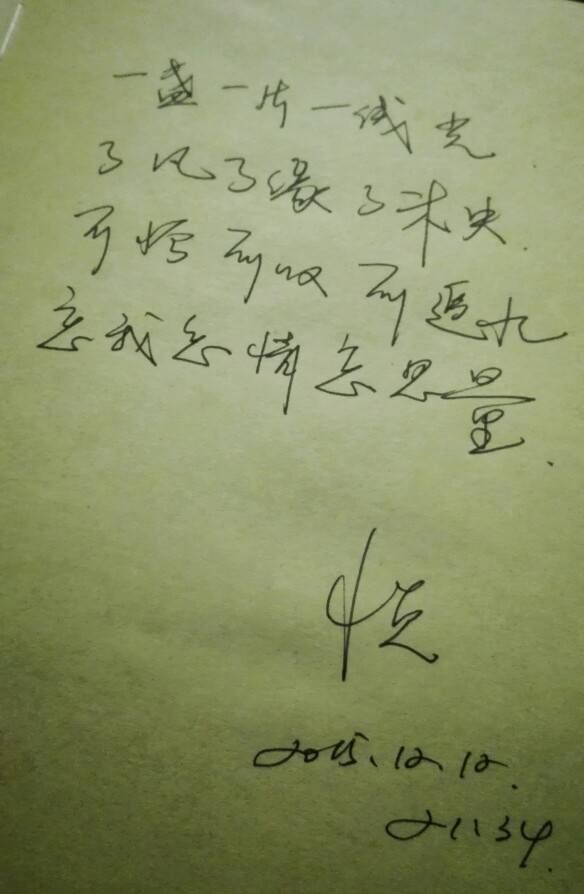 一盏一片一线光
了凡了缘了未央.
可惜可叹可追
忘我忘情忘思量.
恍
2015.12.12.
21:34